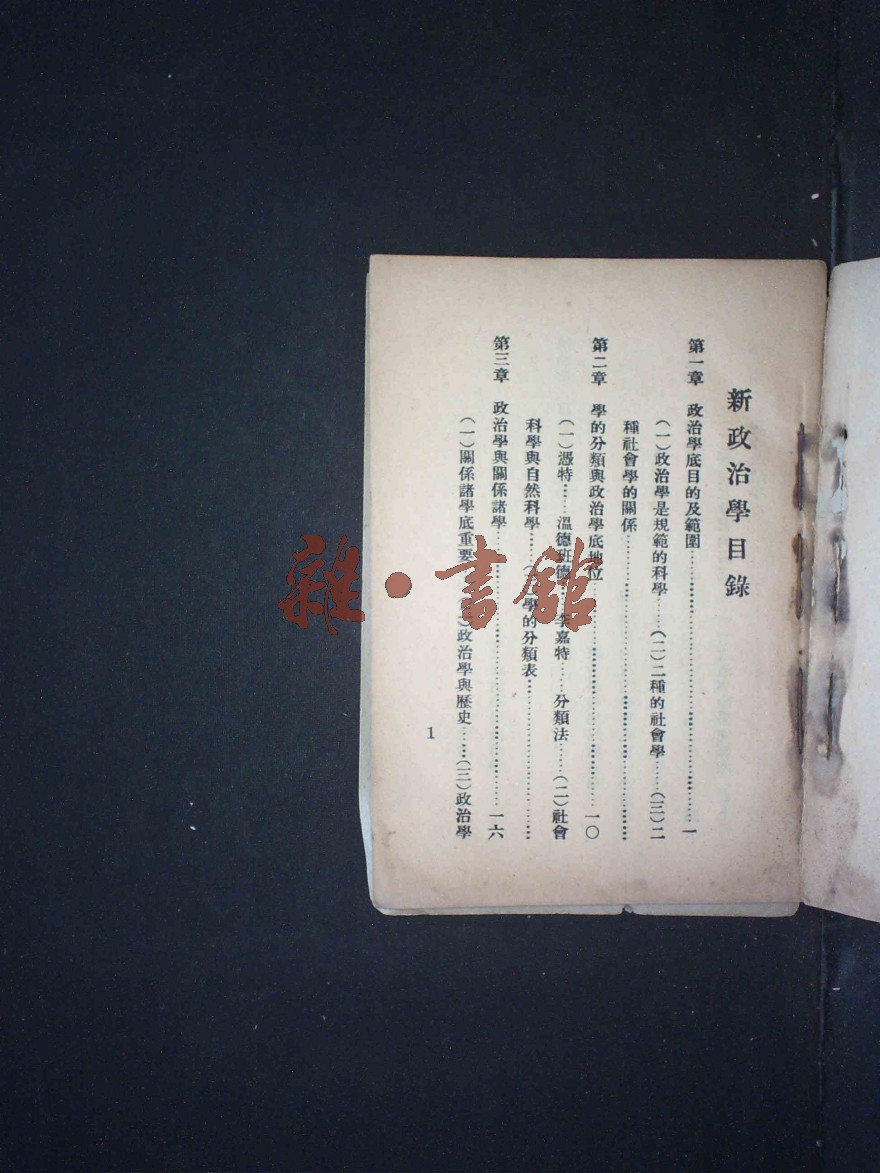 新政治學目錄
第一章　政治學底目的及範圍……一
（一）政治學是規範的科學……（二）二種的社會學……（三）二
種社會學的關係……
第二章　學的分類與政治學底地位……一〇
（一）憑特……溫德班德……李嘉特……分類法……（二）社會
科學與自然科學……（三）學的分類表……
第三章　政治學與關係諸學……一六
（一）關係諸學底重要……（二）政治學與歷史……（三）政治學
1
雜·書館